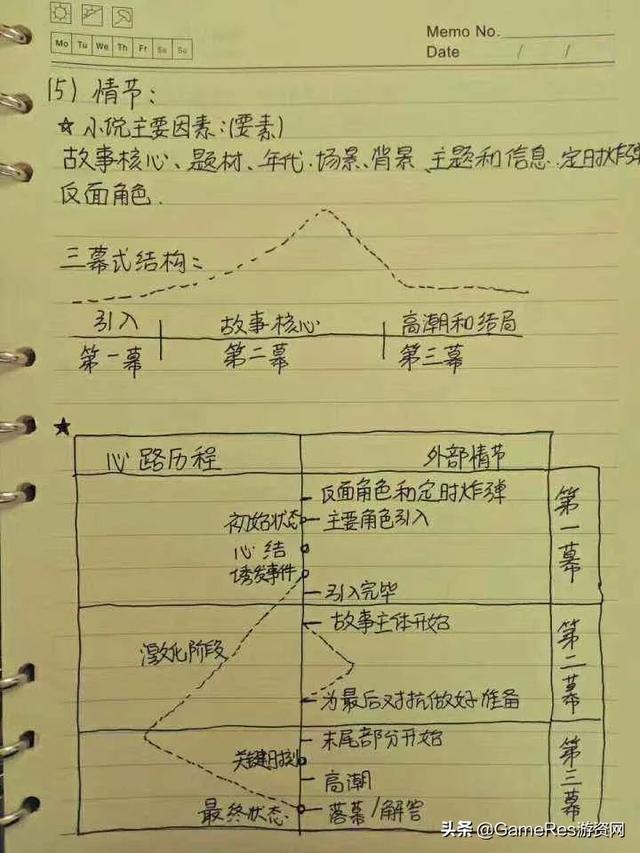 Memo No.
Mo Tu We Th Fr Sa Su
Date / /
15) 情节:
★ 小说主要因素:(要素)
故事核心、题材、年代、场景、背景、主题和信息、定时炸弹
反面角色.
三幕式结构:
引入 故事核心 高潮和结局
第一幕 第二幕 第三幕
★
心路历程 外部情节
反面角色和定时炸弹
初始状态 主要角色引入
心结
诱发事件
引入完毕
第一幕
故事主体开始
激化阶段
为最后对抗做好准备
第二幕
末尾部分开始
关键时刻
高潮
最终状态 落幕/解答
第三幕
头条 @GameRes游资网